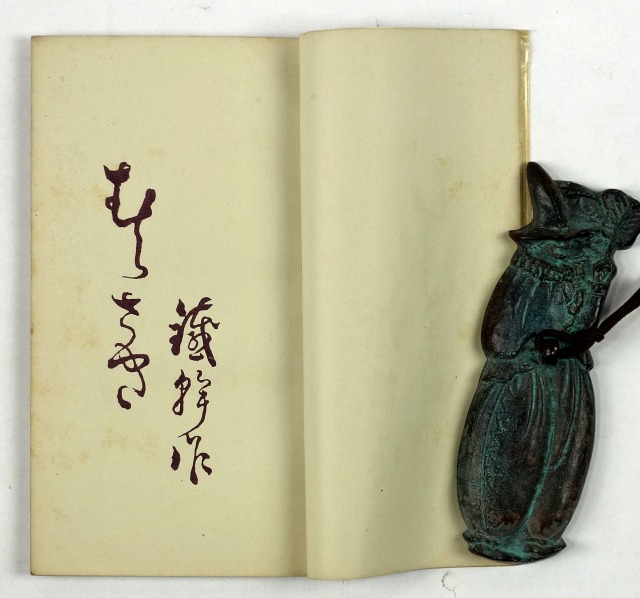 鐵幹作
むらさき